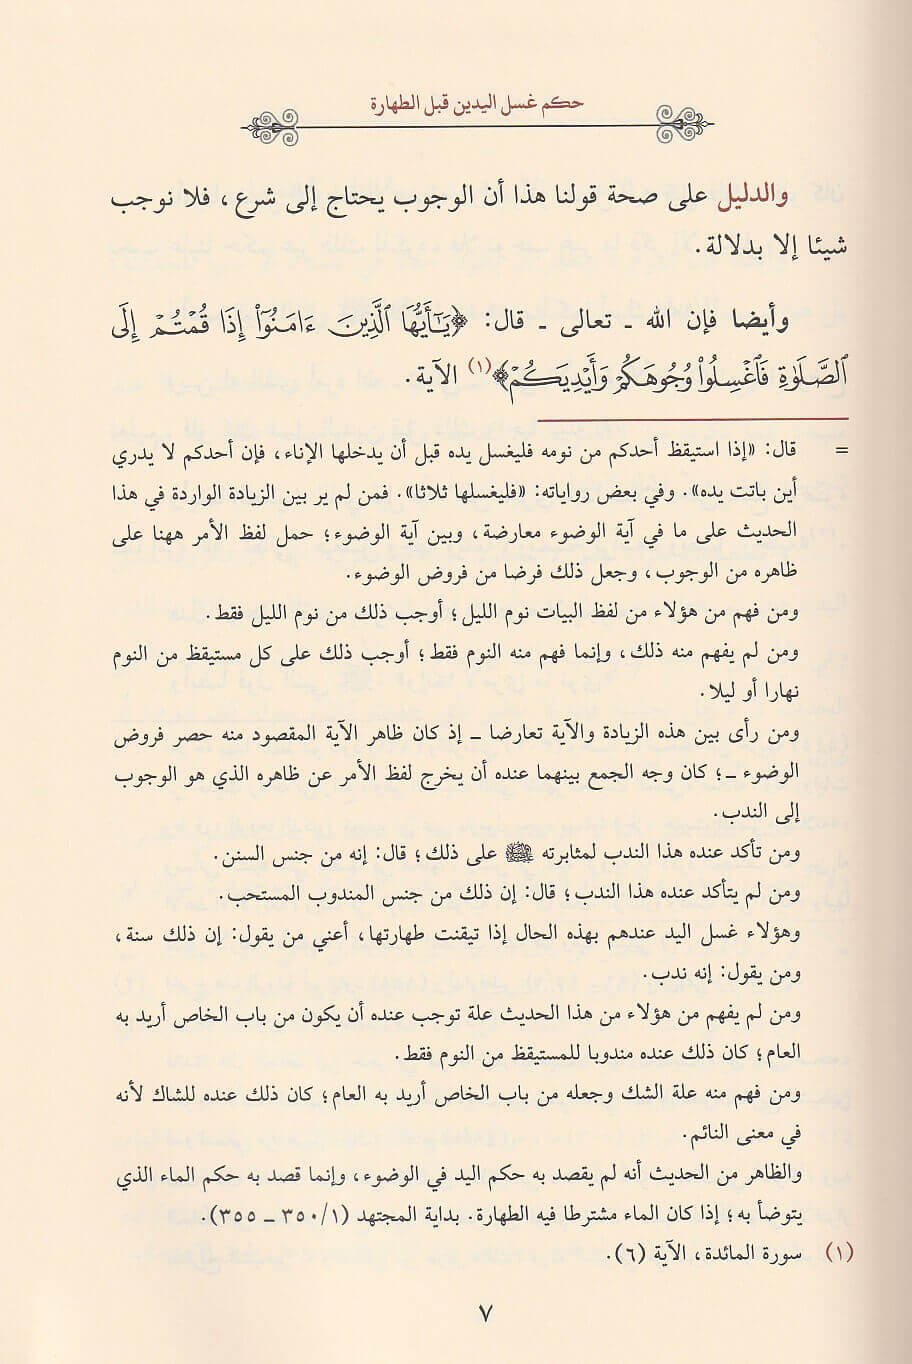 حكم غسل اليدين قبل الطهارة
والدليل على صحة قولنا هذا أن الوجوب يحتاج إلى شرع، فلا نوجب
شيئا إلا بدلالة.
وأيضا فإن الله ـ تعالى ـ قال: ﴿يَٰٓأَيُّهَا ٱلَّذِينَ ءَامَنُوٓا۟ إِذَا قُمْتُمْ إِلَى
ٱلصَّلَوٰةِ فَٱغْسِلُوا۟ وُجُوهَكُمْ وَأَيْدِيَكُمْ﴾(١) الآية.
= قال: «إذا استيقظ أحدكم من نومه فليغسل يده قبل أن يدخلها الإناء، فإن أحدكم لا يدري
أين باتت يده». وفي بعض رواياته: «فليغسلها ثلاثا». فمن لم ير بين الزيادة الواردة في هذا
الحديث على ما في آية الوضوء معارضة، وبين آية الوضوء؛ حمل لفظ الأمر ههنا على
ظاهره من الوجوب، وجعل ذلك فرضا من فروض الوضوء.
ومن فهم من هؤلاء من لفظ البيات نوم الليل؛ أوجب ذلك من نوم الليل فقط.
ومن لم يفهم منه ذلك، وإنما فهم منه النوم فقط؛ أوجب ذلك على كل مستيقظ من النوم
نهارا أو ليلا.
ومن رأى بين هذه الزيادة والآية تعارضا ـ إذ كان ظاهر الآية المقصود منه حصر فروض
الوضوء ـ؛ كان وجه الجمع بينهما عنده أن يخرج لفظ الأمر عن ظاهره الذي هو الوجوب
إلى الندب.
ومن تأكد عنده هذا الندب لمثابرته ﷺ على ذلك؛ قال: إنه من جنس السنن.
ومن لم يتأكد عنده هذا الندب؛ قال: إن ذلك من جنس المندوب المستحب.
وهؤلاء غسل اليد عندهم بهذه الحال إذا تيقنت طهارتها، أعني من يقول: إن ذلك سنة،
ومن يقول: إنه ندب.
ومن لم يفهم من هؤلاء من هذا الحديث علة توجب عنده أن يكون من باب الخاص أريد به
العام؛ كان ذلك عنده مندوبا للمستيقظ من النوم فقط.
ومن فهم منه علة الشك وجعله من باب الخاص أريد به العام؛ كان ذلك عنده للشاك لأنه
في معنى النائم.
والظاهر من الحديث أنه لم يقصد به حكم اليد في الوضوء، وإنما قصد به حكم الماء الذي
يتوضأ به؛ إذا كان الماء مشترطا فيه الطهارة. بداية المجتهد (٣٥٠/١ ـ ٣٥٥).
(١) سورة المائدة، الآية (٦).
٧